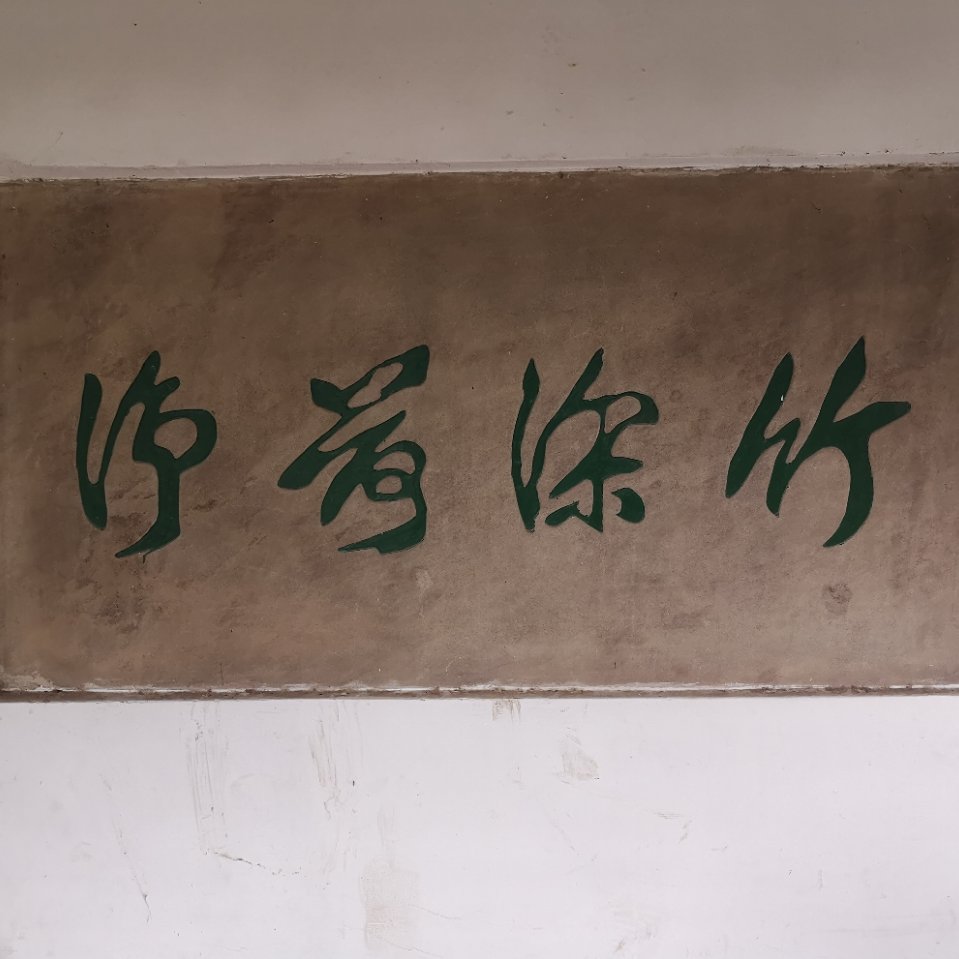 竹深荷净